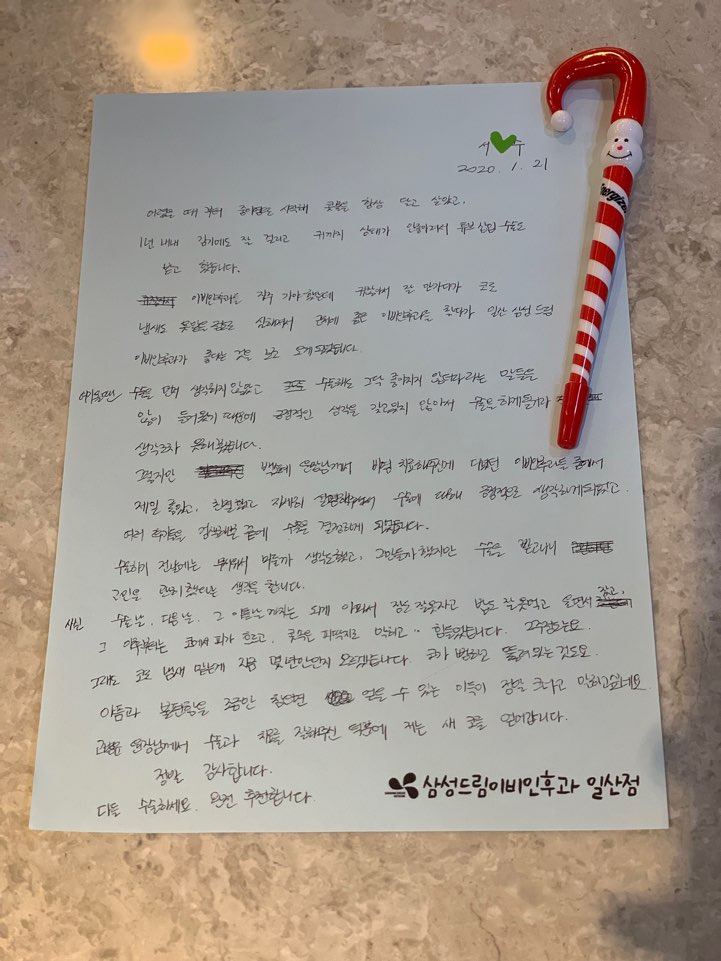 서 수
2020. 1. 21
어렸을 때 부터 중이염으로 시작해 콧물을 항상 달고 살았고,
1년 내내 감기에도 잘 걸리고 귀까지 상태가 안좋아져서 튜브 삽입 수술도
받고 했습니다.
이비인후과를 자주 가야 했는데 귀찮아서 잘 안가다가 코로
냄새도 못맡을 정도로 심해져서 좋은 이비인후과를 찾다가 일산 삼성드림
이비인후과가 좋다는 것을 보고 오게 되었습니다.
수술을 먼저 생각하지 않았고 수술해도 그닥 좋아지지 않는다라는 말들을
많이 들어왔기 때문에 긍정적인 생각을 갖고있지 않아서 수술을 하게 될거라
생각조차 못해봤습니다.
그렇지만 원장님께서 비염 치료해주신게 다녔던 이비인후과들 중에서
제일 좋았고, 친절했고 자세히 설명해주셔서 수술에 대해 긍정적으로 생각하게 되었고
여러 후기들을 검색해본 끝에 수술을 결정하게 되었습니다.
수술하기 전날에는 무서워서 미룰까 생각도 했고, 그만둘까 했지만 수술을 받고나니
고민을 괜히 했다는 생각을 합니다.
사실 수술날, 다음날, 그 이튿날 까지는 되게 아파서 잠도 잘 못자고 밥도 잘 못먹고 울면서 잤고,
그 이후부터는 코에서 피가 흐르고, 콧속은 피딱지로 막히고.. 힘들었습니다. 2주정도는요.
그래도 코로 냄새 맡는게 지금 몇년만인지 모르겠습니다. 코가 뻥하고 뚫려 있는 것도요.
아픔과 불편함을 조금만 참으면 얻을 수 있는 이득이 정말 크다고 말하고 싶네요.
원장님께서 수술과 치료를 잘해주신 덕분에 저는 새 코를 얻어갑니다.
정말 감사합니다.
다들 수술하세요. 완전 추천합니다.
삼성드림이비인후과 일산점
Energizer